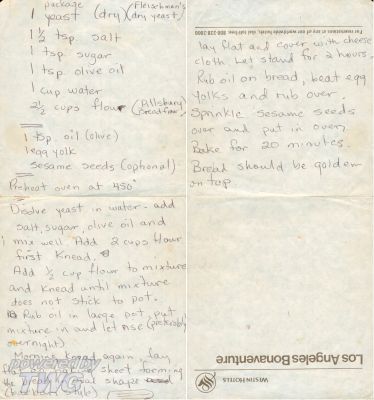 package
1 yeast (dry) (Fleischman's dry yeast)
1 ½ tsp. salt
1 tsp sugar
1 tsp olive oil
1 cup water
2½ cups flour (Pillsbury Bread flour)
1 tsp. oil (olive)
1 egg yolk
sesame seeds (optional)
Preheat oven at 450°
Disolve yeast in water - add
salt, sugar, olive oil and
mix well. Add 2 cups flour
first Knead.
Add ½ cup flour to mixture
and Knead until mixture
does not stick to pot.
Rub oil in large pot, put
mixture in and let rise (preferably
overnight)
Morning Knead again, lay
sheet forming
the shape
lay flat and cover with cheese
cloth. Let stand for 2 hours.
Rub oil on bread, beat egg
yolks and rub over.
Sprinkle sesame seeds
over and put in oven
Bake for 20 minutes.
Bread should be golden
on top
For reservations at any of our worldwide hotels, dial toll free: 800-228-3000
Los Angeles Bonaventure
WESTIN HOTELS
powered by
TWG